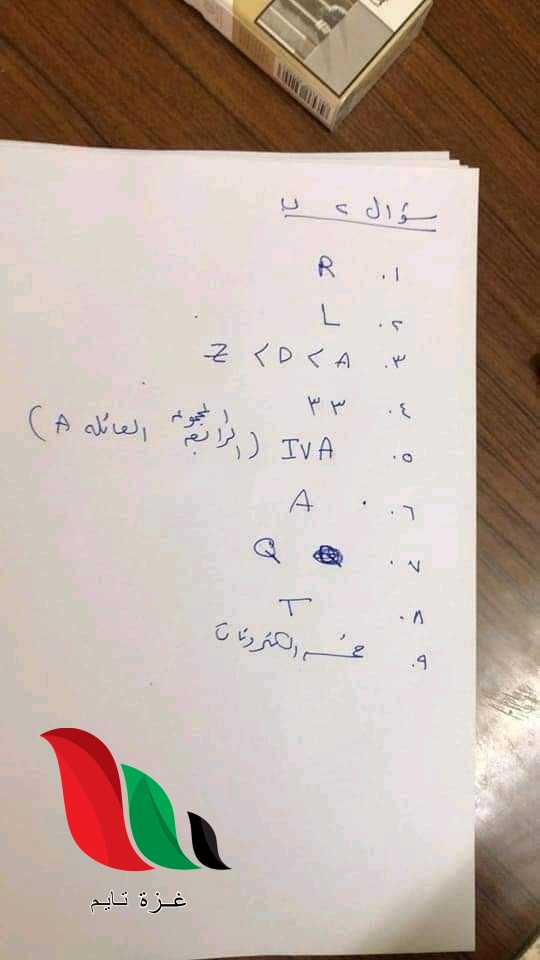 سؤال ٢ ب
١. R
٢. L
٣. Z < D < A
٤. ٣٣
٥. IVA (المجموعة الرابعة العائلة A)
٦. A
٧. Q
٨. T
٩. خمسه الكترونات
غـزة تـايـم